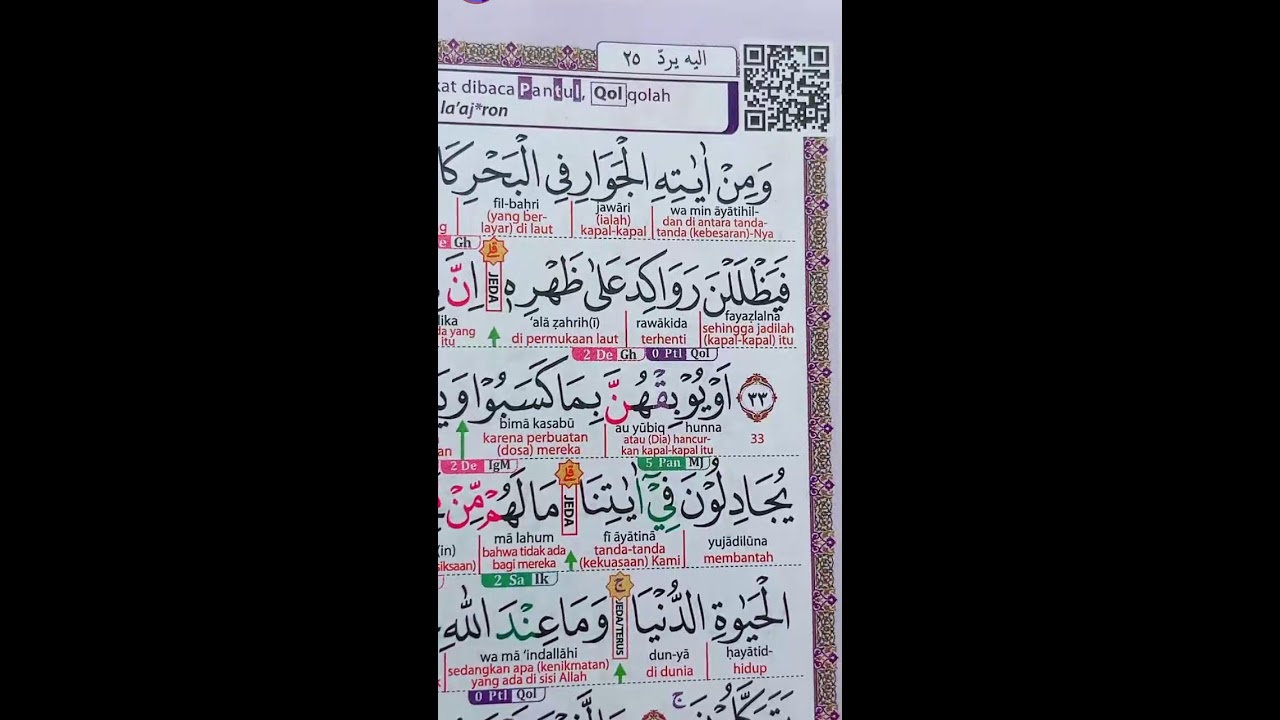 اليه يردّ ٢٥
dibaca Pantul, Qolqolah
la'aj*ron
وَمِنْ اٰيٰتِهِ الْجَوَارِ فِى الْبَحْرِ
wa min āyātihil- jawāri fil-baḥri
dan di antara tanda-tanda (kebesaran)-Nya (ialah) kapal-kapal (yang ber-layar) di laut
Gh
فَيَظْلَلْنَ رَوَاكِدَ عَلٰى ظَهْرِهٖ ۗ اِنَّ
JEDA
fayaẓlalna rawākida 'alā ẓahrih(ī)
sehingga jadilah (kapal-kapal) itu terhenti di permukaan laut
itu
2 De Gh 0 Ptl Qol
٣٣ اَوْ يُوْبِقْهُنَّ بِمَا كَسَبُوْا
33 au yūbiq hunna bimā kasabū
atau (Dia) hancur-kan kapal-kapal itu karena perbuatan (dosa) mereka
2 De IgM 5 Pan MJ
يُجَادِلُوْنَ فِيْٓ اٰيٰتِنَا ۗ مَا لَهُمْ مِّنْ
JEDA
yujādilūna fī āyātinā mā lahum
membantah tanda-tanda (kekuasaan) Kami bahwa tidak ada bagi mereka
2 Sa Ik
الْحَيٰوةِ الدُّنْيَا ۚ وَمَا عِنْدَ اللّٰهِ
JEDA/TERUS
ḥayātid- dun-yā wa mā 'indallāhi
hidup di dunia sedangkan apa (kenikmatan) yang ada di sisi Allah
0 Ptl Qol